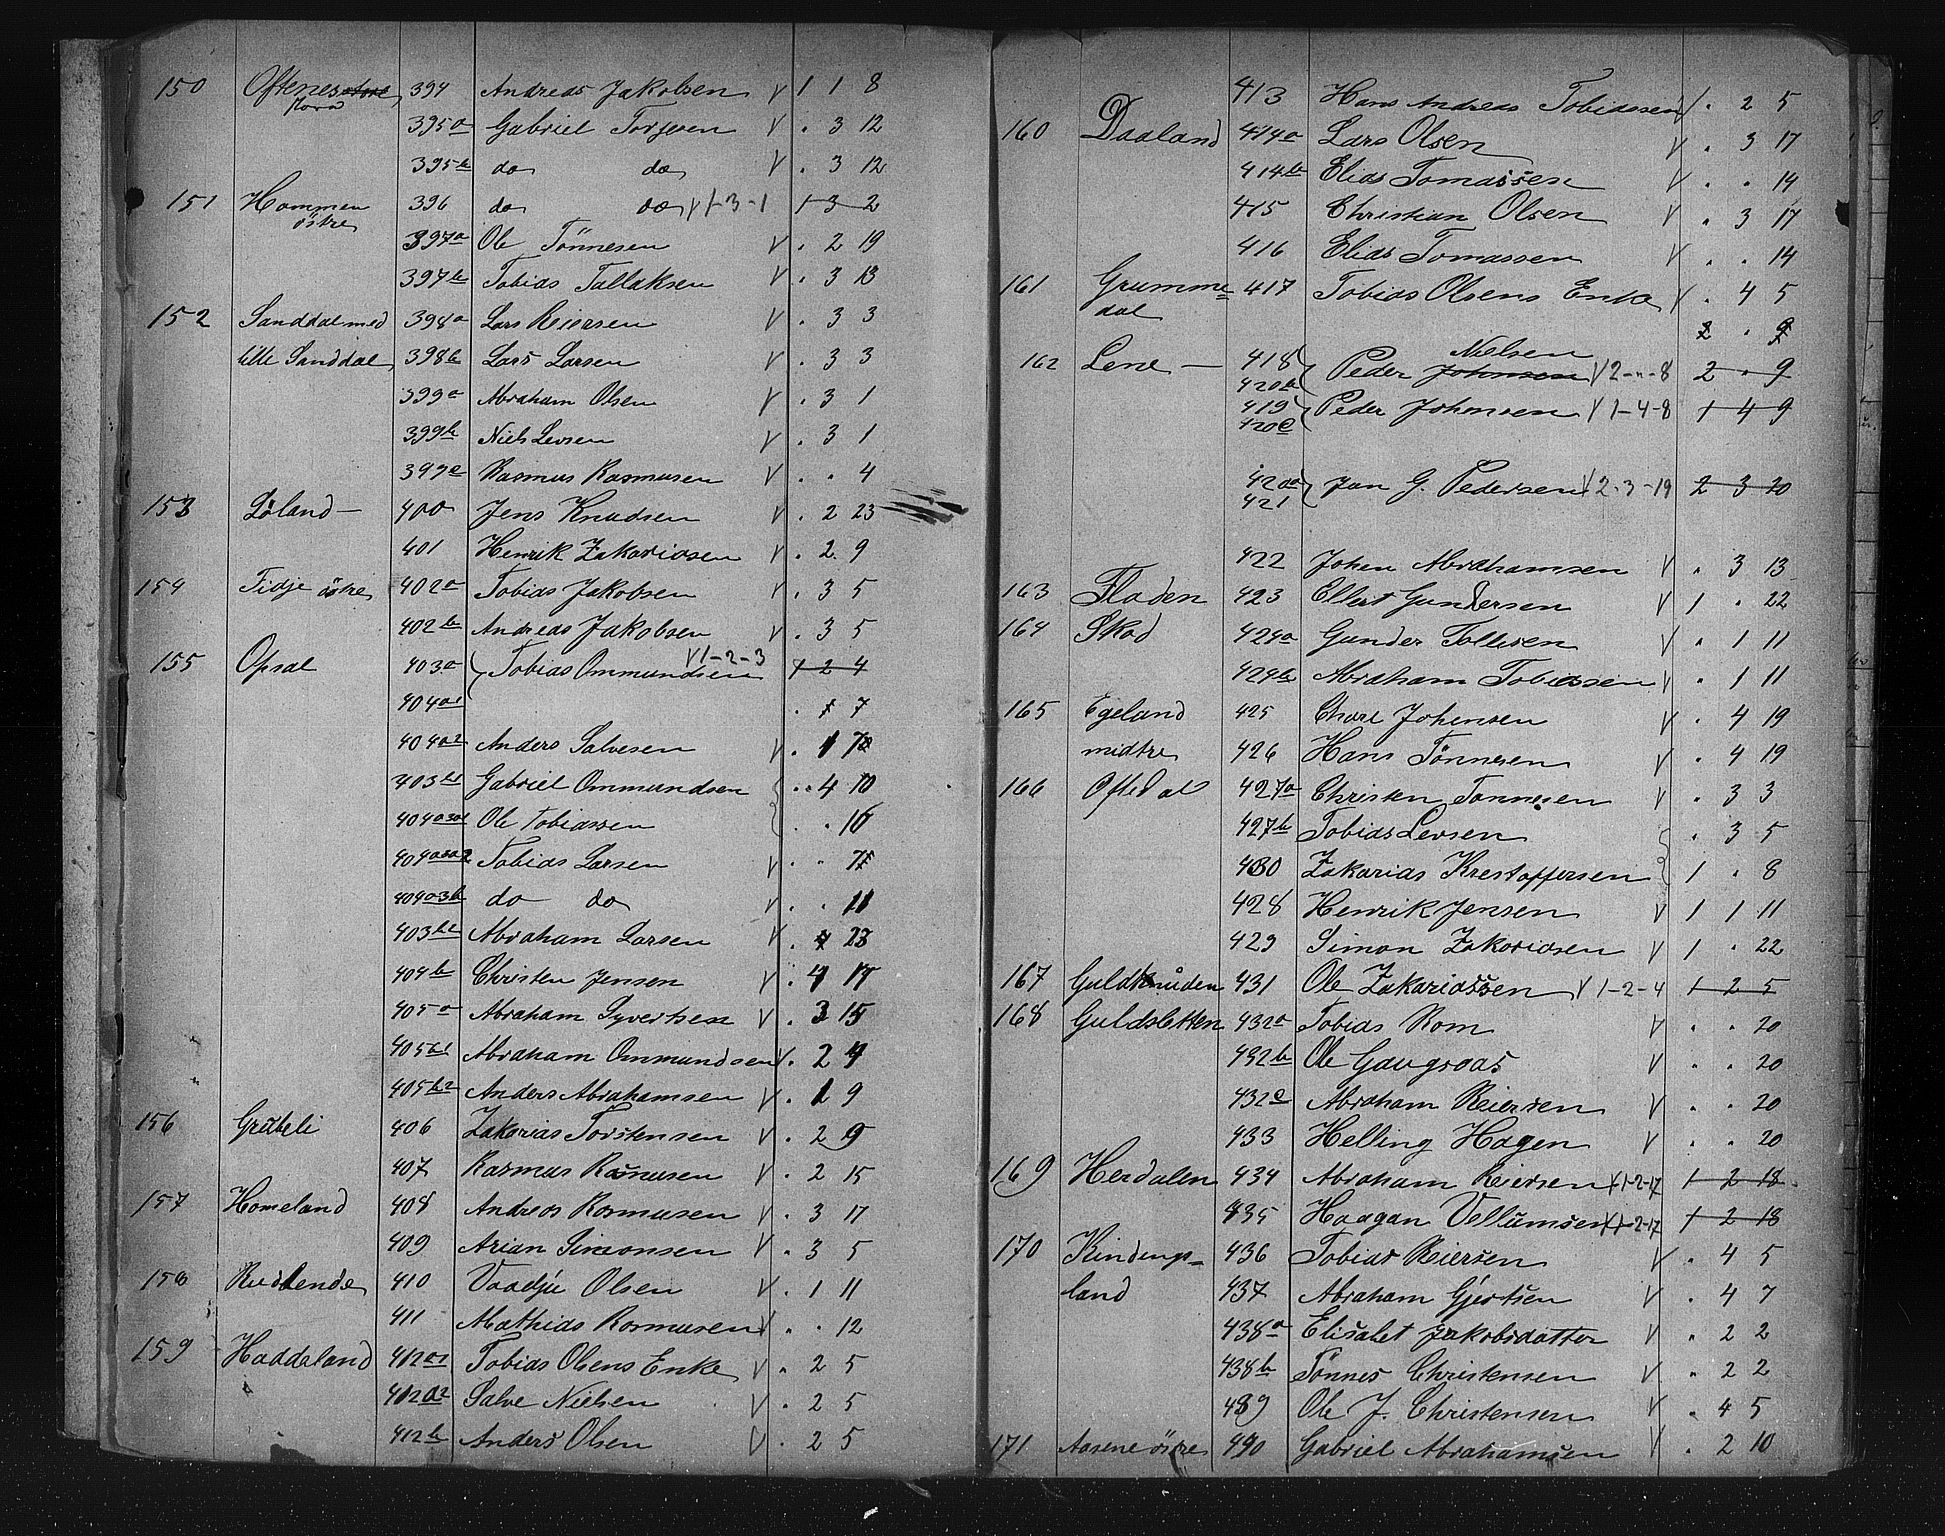 150 Oftenes 394 Andreas Jakobsen V 1 1 8
395a Gabriel Torjesen V . 3 12
395b do do V . 3 12
151 Hommen 396 do do V 1-3-1 1 3 2
östre 397a Ole Tönnesen V . 2 19
397b Tobias Tallaksen V . 3 13
152 Sanddal med 398a Lars Reiersen V . 3 3
lille Sanddal 398b Lars Larsen V . 3 3
399a Abraham Olsen V . 3 1
399b Niels Levsen V . 3 1
Rasmus Rasmusen V . . 4
153 Löland — 400 Jens Knudsen V . 2 23
401 Henrik Zakariasen V . 2 9
154 Fidje östre 402a Tobias Jakobsen V . 3 5
402b Andreas Jakobsen V . 3 5
155 Opsal 403a Tobias Ommundsen V 1-2-3 1 2 4
404a1 . 1 7
404a2 Anders Salvesen V . 1
403b1 Gabriel Ommundsen . 4 10
Ole Tobiassen . . 16
Tobias Larsen V . .
404a3b do do V . . 11
Abraham Larsen V . 4 23
404b Christen Jensen V . 4 17
405a Abraham Syvertsen V . 3 15
405b1 Abraham Ommundsen V . 2 4
405b2 Anders Abrahamsen V . 1 9
156 Grubeli 406 Zakarias Torstensen V . 2 9
407 Rasmus Rasmusen V . 2 15
157 Homeland 408 Andreas Rasmusen V . 3 17
409 Arian Simonsen V . 3 5
158 410 Vaadju Olsen V . 1 11
411 Mathias Rasmusen V . . 12
159 Haddeland 412a1 Tobias Olsens Enke V . 2 5
412a2 Salve Nielsen V . 2 5
412b Anders Olsen V . 2 5
413 Hans Andreas Tobiassen V . 2 5
160 Daaland 414a Lars Olsen V . 3 17
414b Elias Tomassen V . . 14
415 Christian Olsen V . 3 17
416 Elias Tomassen V . . 14
161 Grumme= 417 Tobias Olsens Enke V . 4 5
dal
2 . 9
Nielsen
162 Lene — 418 Peder Johnsen V 2-"-8 2 . 9
420b
419 Peder Johnsen V 1-4-8 1 4 9
420c
420a Jan G. Pedersen V 2-3-19 2 3 20
421
422 Johan Abrahamsen V . 3 13
163 Fladen 423 Ellert Gundersen V 1 . 22
164 Skod 424a Gunder Tollisen V . 1 11
424b Abraham Tobiassen V . 1 11
165 Egeland 425 Charl Johensen V . 4 19
midtre 426 Hans Tönnesen V . 4 19
166 Oftedal 427a Christen Tönnesen V . 3 3
427b Tobias Levsen . 3 5
430 Zakarias Krestoffersen 1 . 8
428 Henrik Jensen V 1 1 11
429 Simon Zakariasen V 1 . 22
167 Guldknuden 431 Ole Zakariassen V 1-2-4 1 2 5
168 Guldsletten 432a Tobias Rom V . . 20
432b Ole Gaugsaas V . . 20
432c Abraham Reiersen V . . 20
433 Helling Hagen V . . 20
169 Herdalen 434 Abraham Reiersen V 1-2-17 1 2 18
435 Haagan Vellumsen V 1-2-17 1 2 18
170 Kindings= 436 Tobias Reiersen V . 4 5
land 437 Abraham Gjertsen V . 4 7
438a Elisabet Jakobsdatter V . 2 2
438b Tönnes Christensen V . 2 2
439 Ole J. Christensen V . 4 5
171 Aasene östre 440 Gabriel Abrahamsen V . 2 10